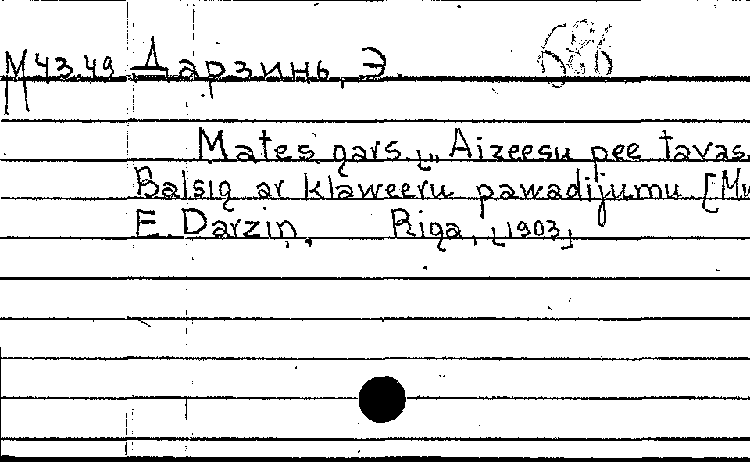 М 43.49 Дарзинь, Э. 686
Mates gars. [„Aizeesu pee tavas
Balsiq ar klaweeru pawadijumu [Mu
E. Darziņ. Riga, [1903]